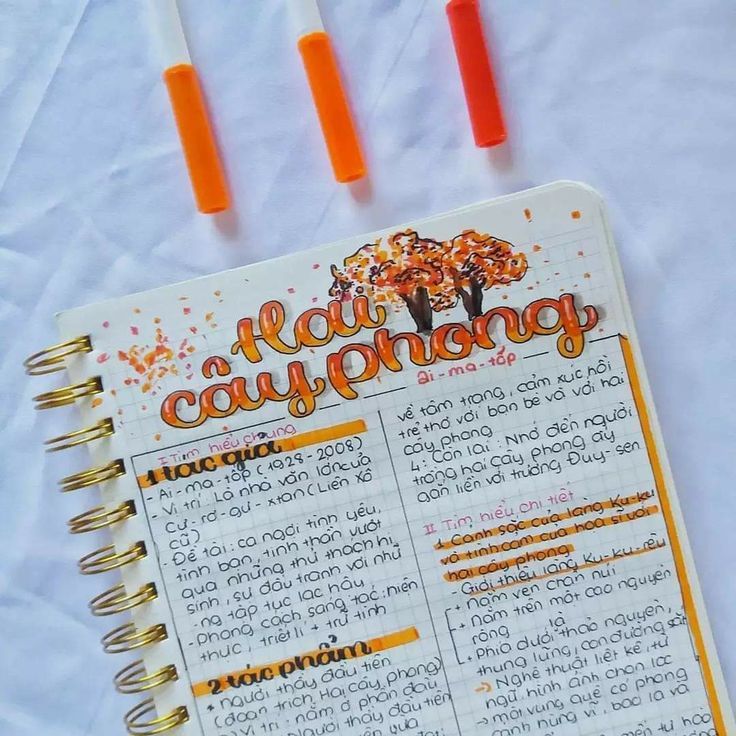 Hai
cây phong
ai-ma-tốp
I Tìm hiểu chung
1 tác giả
- Ai-ma-tốp (1928-2008)
- Vị trí: Là nhà văn lớn của
Cư-rơ-gư-xtan (Liên Xô
cũ)
- Đề tài: ca ngợi tình yêu,
tình bạn, tinh thần vượt
qua những thử thách hi
sinh, sự đấu tranh với nhữ
-ng tập tục lạc hậu
- Phong cách sáng tác: hiện
thực, triết lí + trữ tình
2 tác phẩm
* Người thầy đầu tiên
(đoạn trích Hai cây phong)
Vị trí: nằm ở phần đầu
Người thầy đầu tiên
về tâm trạng, cảm xúc hồi
trẻ thơ với bạn bè và với hai
cây phong
4: Còn lại: Nhớ đến người
trồng hai cây phong ấy
gắn liền với trường Đuy-sen
II Tìm hiểu chi tiết
1 Cảnh sắc của làng Ku-ku
và tình cảm của họa sĩ với
hai cây phong
- Giới thiệu làng Ku-ku-rêu
+ Nằm ven chân núi
+ Nằm trên một cao nguyên
rộng
+ Phía dưới thảo nguyên,
thung lũng, con đường sắt
→ Nghệ thuật liệt kê, từ
ngữ, hình ảnh chọn lọc
→ một vùng quê có phong
cảnh hùng vĩ, bao la và